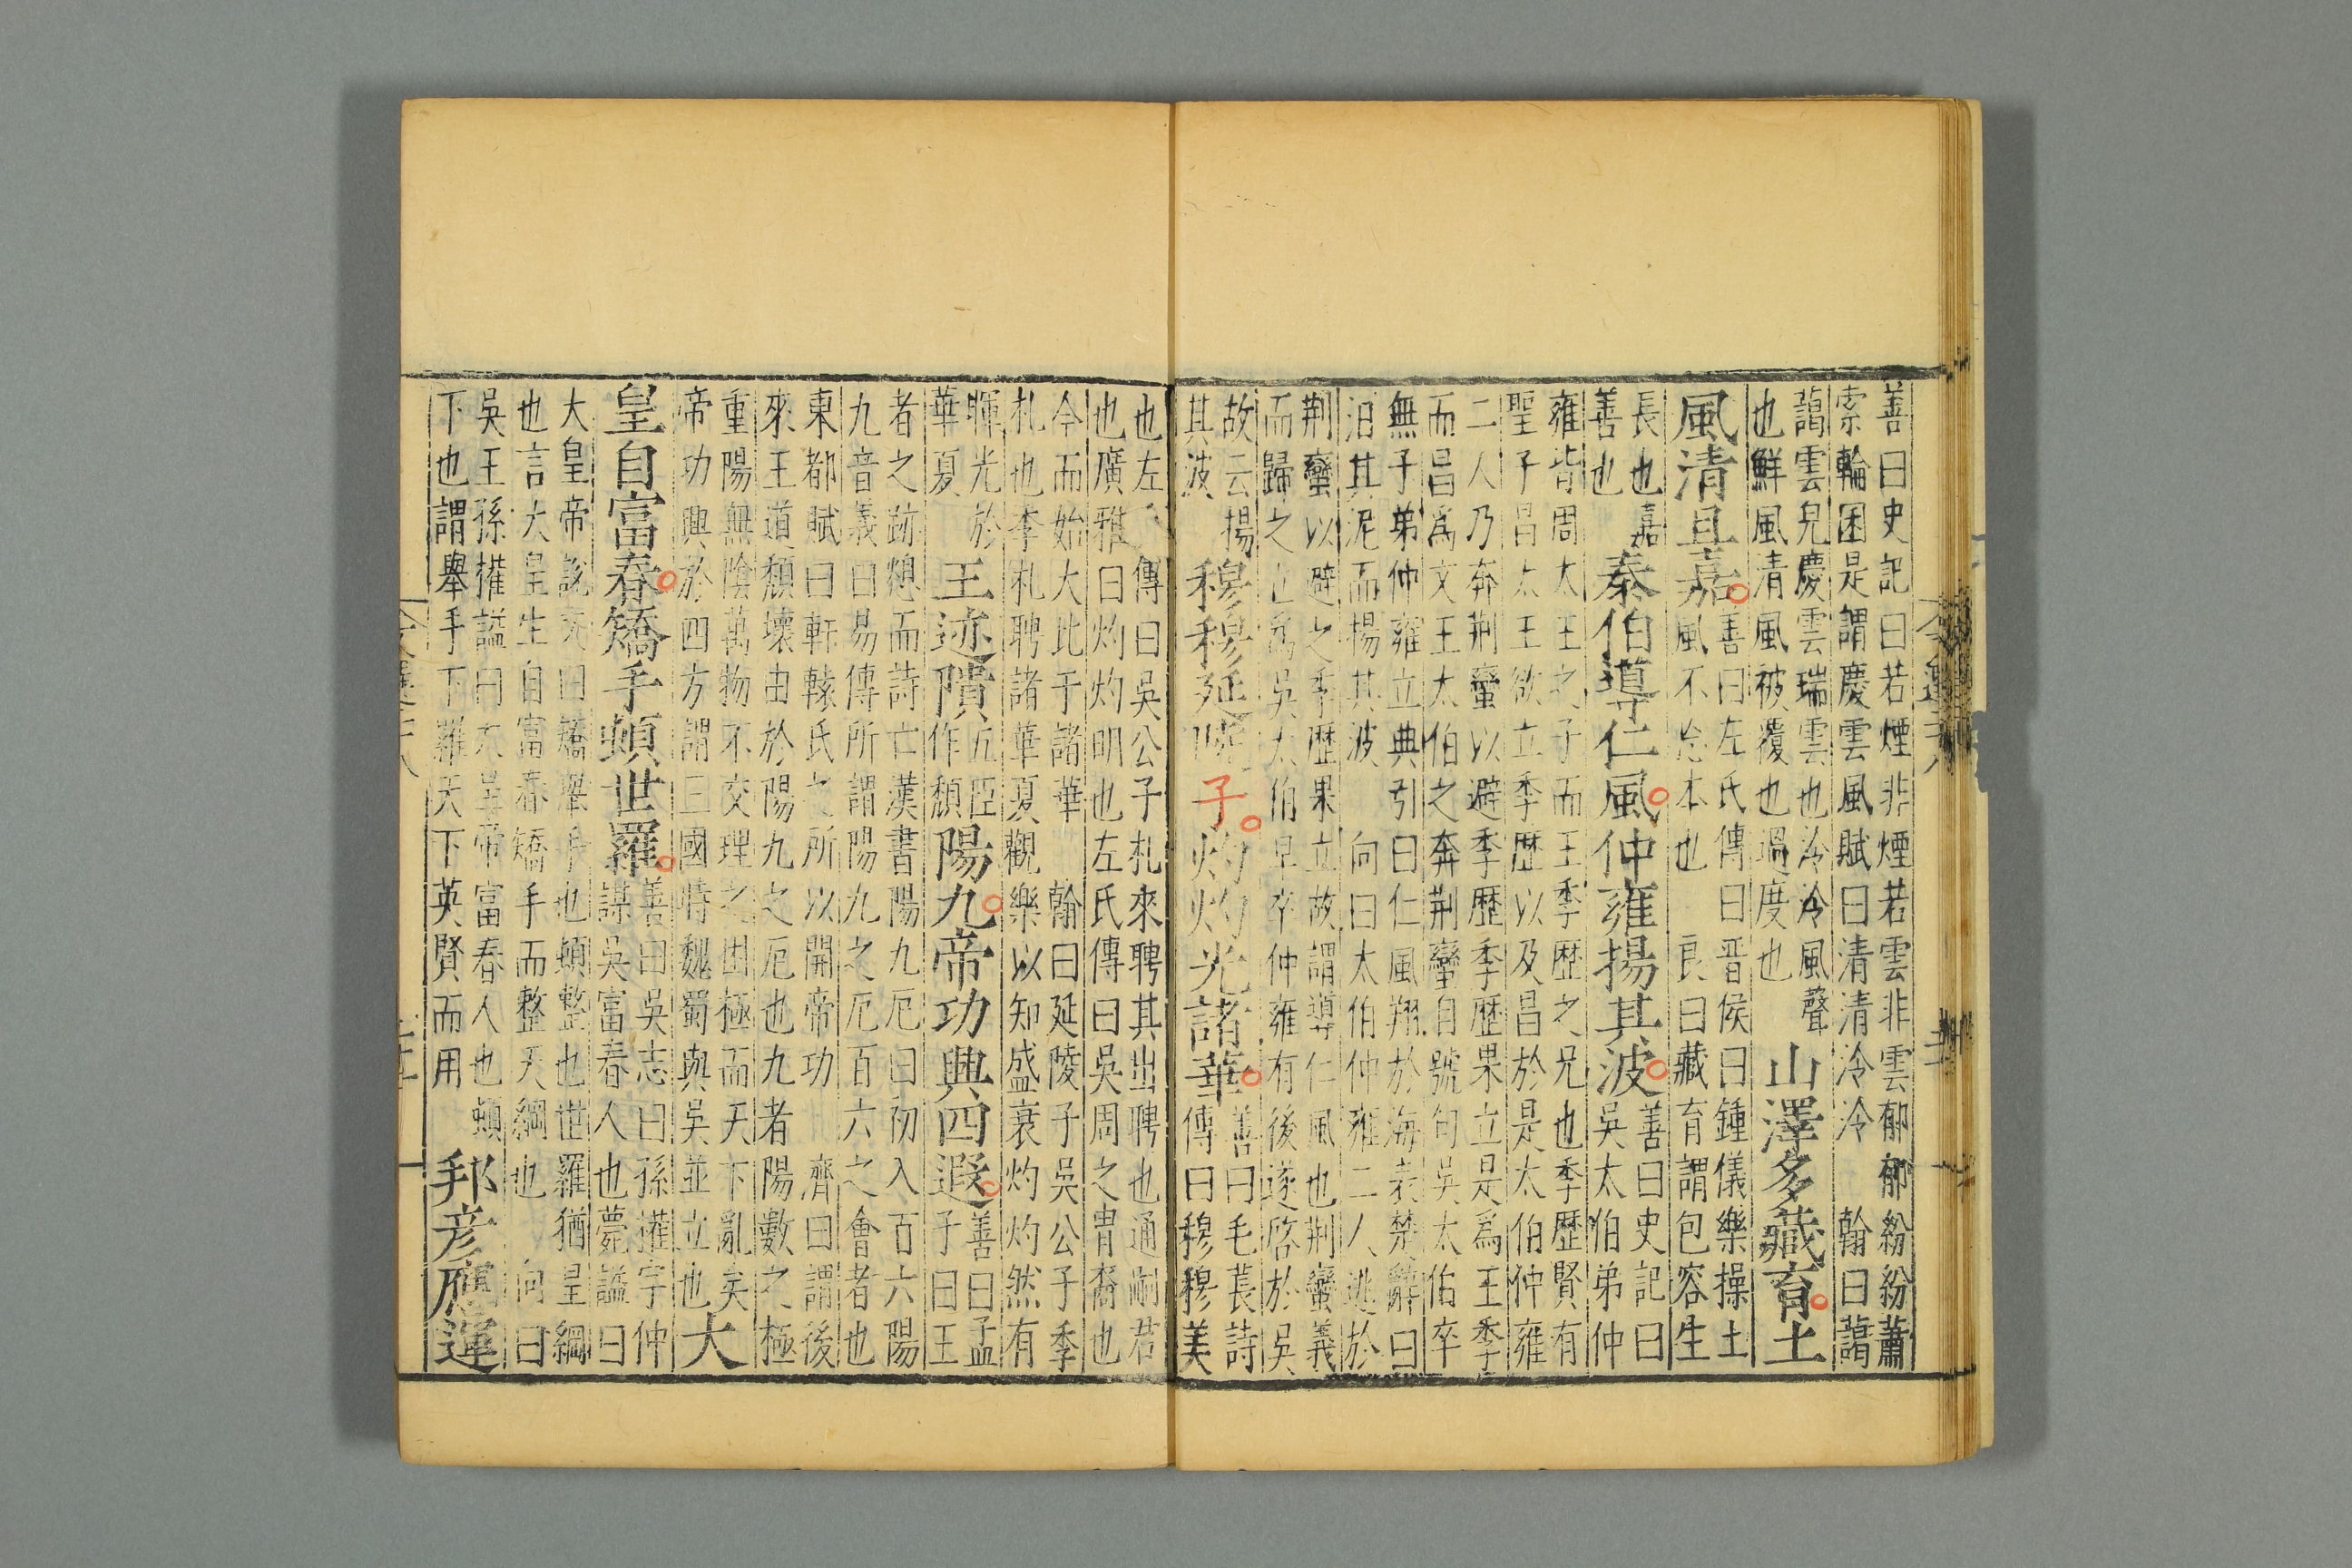 善曰史記曰若煙非煙若雲非雲郁郁紛紛蕭
索輪囷是謂慶雲風賦曰清清泠泠 翰曰藹
藹雲皃慶雲瑞雲也泠泠風聲
也鮮風清風被覆也過度也
山澤多藏育土
風清且嘉
善曰左氏傳曰晋侯曰鍾儀樂操土
風不忘本也 良曰藏育謂包容生
長也嘉
善也
泰伯導仁風仲雍揚其波
善曰史記曰
吳太伯弟仲
雍皆周太王之子而王季歷之兄也季歷賢有
聖子昌太王欲立季歷以及昌於是太伯仲雍
二人乃奔荆蠻以避季歷季歷果立是爲王季
而昌爲文王太伯之奔荆蠻自號句吳太伯卒
無子弟仲雍立典引曰仁風翔於海表楚辭曰
汨其泥而揚其波 向曰太伯仲雍二人逃於
荆蠻以避之季歷果立故謂導仁風也荆蠻義
而歸之立爲吳太伯早卒仲雍有後遂啓於吳
故云揚
其波
穆穆延陵子灼灼光諸華
善曰毛萇詩
傳曰穆穆美
也左 傳曰吳公子札來聘其出聘也通嗣君
也廣雅曰灼灼明也左氏傳曰吳周之胄裔也
今而始大比于諸華 翰曰延陵子吳公子季
札也季札聘諸華夏觀樂以知盛衰灼灼然有
暉光於
華夏
王迹隤
五臣
作頽
陽九帝功興四遐
善曰孟
子曰王
者之跡熄而詩亡漢書陽九厄曰初入百六陽
九音義曰易傳所謂陽九之厄百六之會者也
東都賦曰軒轅氏之所以開帝功 濟曰謂後
來王道頽壞由於陽九之厄也九者陽數之極
重陽無陰萬物不交理之困極而天下亂矣
帝功興於四方謂三國時魏蜀與吳並立也
大
皇自富春矯手頓世羅
善曰吳志曰孫權字仲
謀吳富春人也薨謚曰
大皇帝説文曰矯舉手也頓整也世羅猶皇綱
也言大皇生自富春矯手而整天綱也 向曰
吳王孫權謚曰大皇帝富春人也頓
下也謂舉手下羅天下英賢而用
邦彦應運